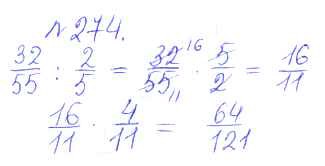 № 274.
32/55 : 2/5 = 32 16/55 11 · 5/2 = 16/11
16/11 · 4/11 = 64/121